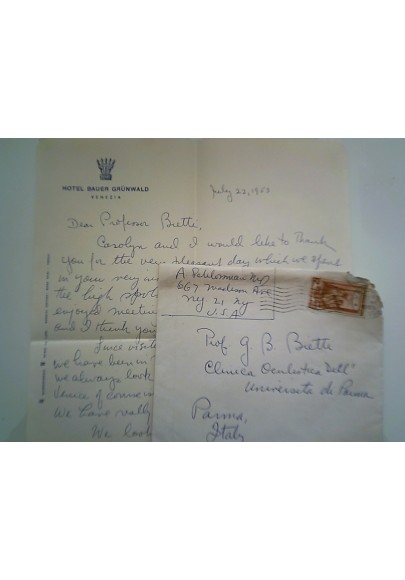 HOTEL BAUER GRÜNWALD
VENEZIA
July 22, 1953
Dear Professor Bietti,
Carolyn and I would like to thank
you for the very pleasant days which we spent
in your very
the high spots
enjoyed meeting
and I thank you
Since visit
we have been in
we always look
Venice of
we have really
We look
667 Madison Ave
NY 21 NY
USA
Prof G B Bietti
Clinica Oculistica Dell'
Universita de Parma
Parma,
Italy